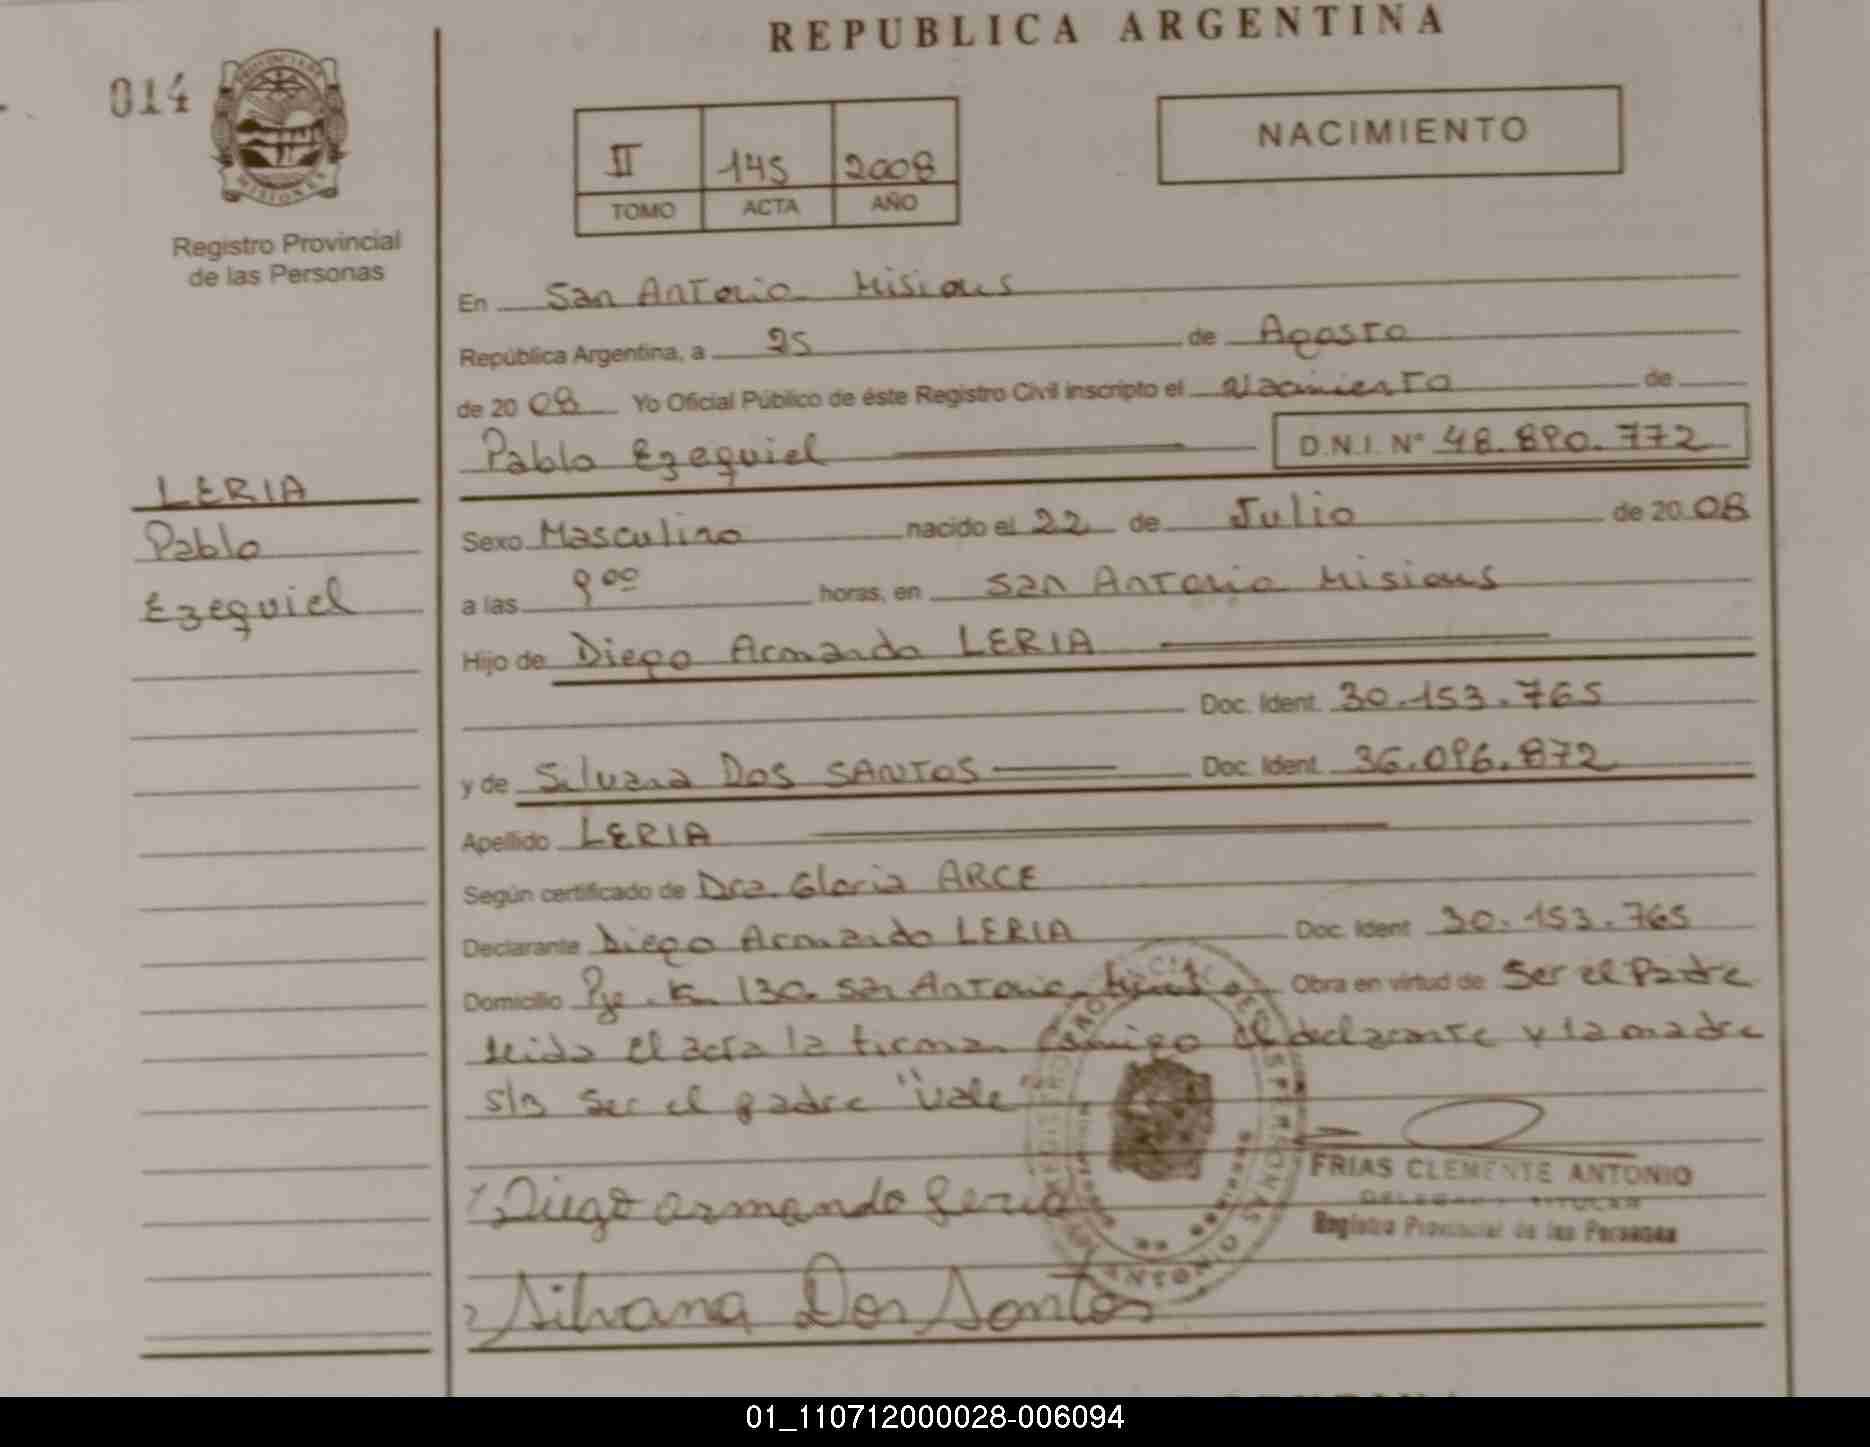 REPUBLICA ARGENTINA
014
PROVINCIA DE
MISIONES
Registro Provincial
de las Personas
II 145 2008
TOMO ACTA AÑO
NACIMIENTO
En San Antonio Misiones
República Argentina, a 25 de Agosto
de 2008 Yo Oficial Público de éste Registro Civil inscripto el Nacimiento de
Pablo Ezequiel D.N.I. N° 48.890.772
LERIA
Pablo
Ezequiel
Sexo Masculino nacido el 22 de Julio de 2008
a las 9 00 horas, en San Antonio Misiones
Hijo de Diego Armando LERIA
Doc. Ident. 30.153.765
y de Silvana DOS SANTOS Doc. Ident. 36.096.872
Apellido LERIA
Según certificado de Dra. Gloria ARCE
Declarante Diego Armando LERIA Doc. Ident 30.153.765
Domicilio 130 San Antonio Obra en virtud de Ser el Padre
leida el acta la firman conmigo el declarante y la madre
s/r ser el padre "vale
Diego armando Leria
Silvana Dos Santos
FRIAS CLEMENTE ANTONIO
DELEGADO TITULAR
Registro Provincial de las Personas
01_110712000028-006094